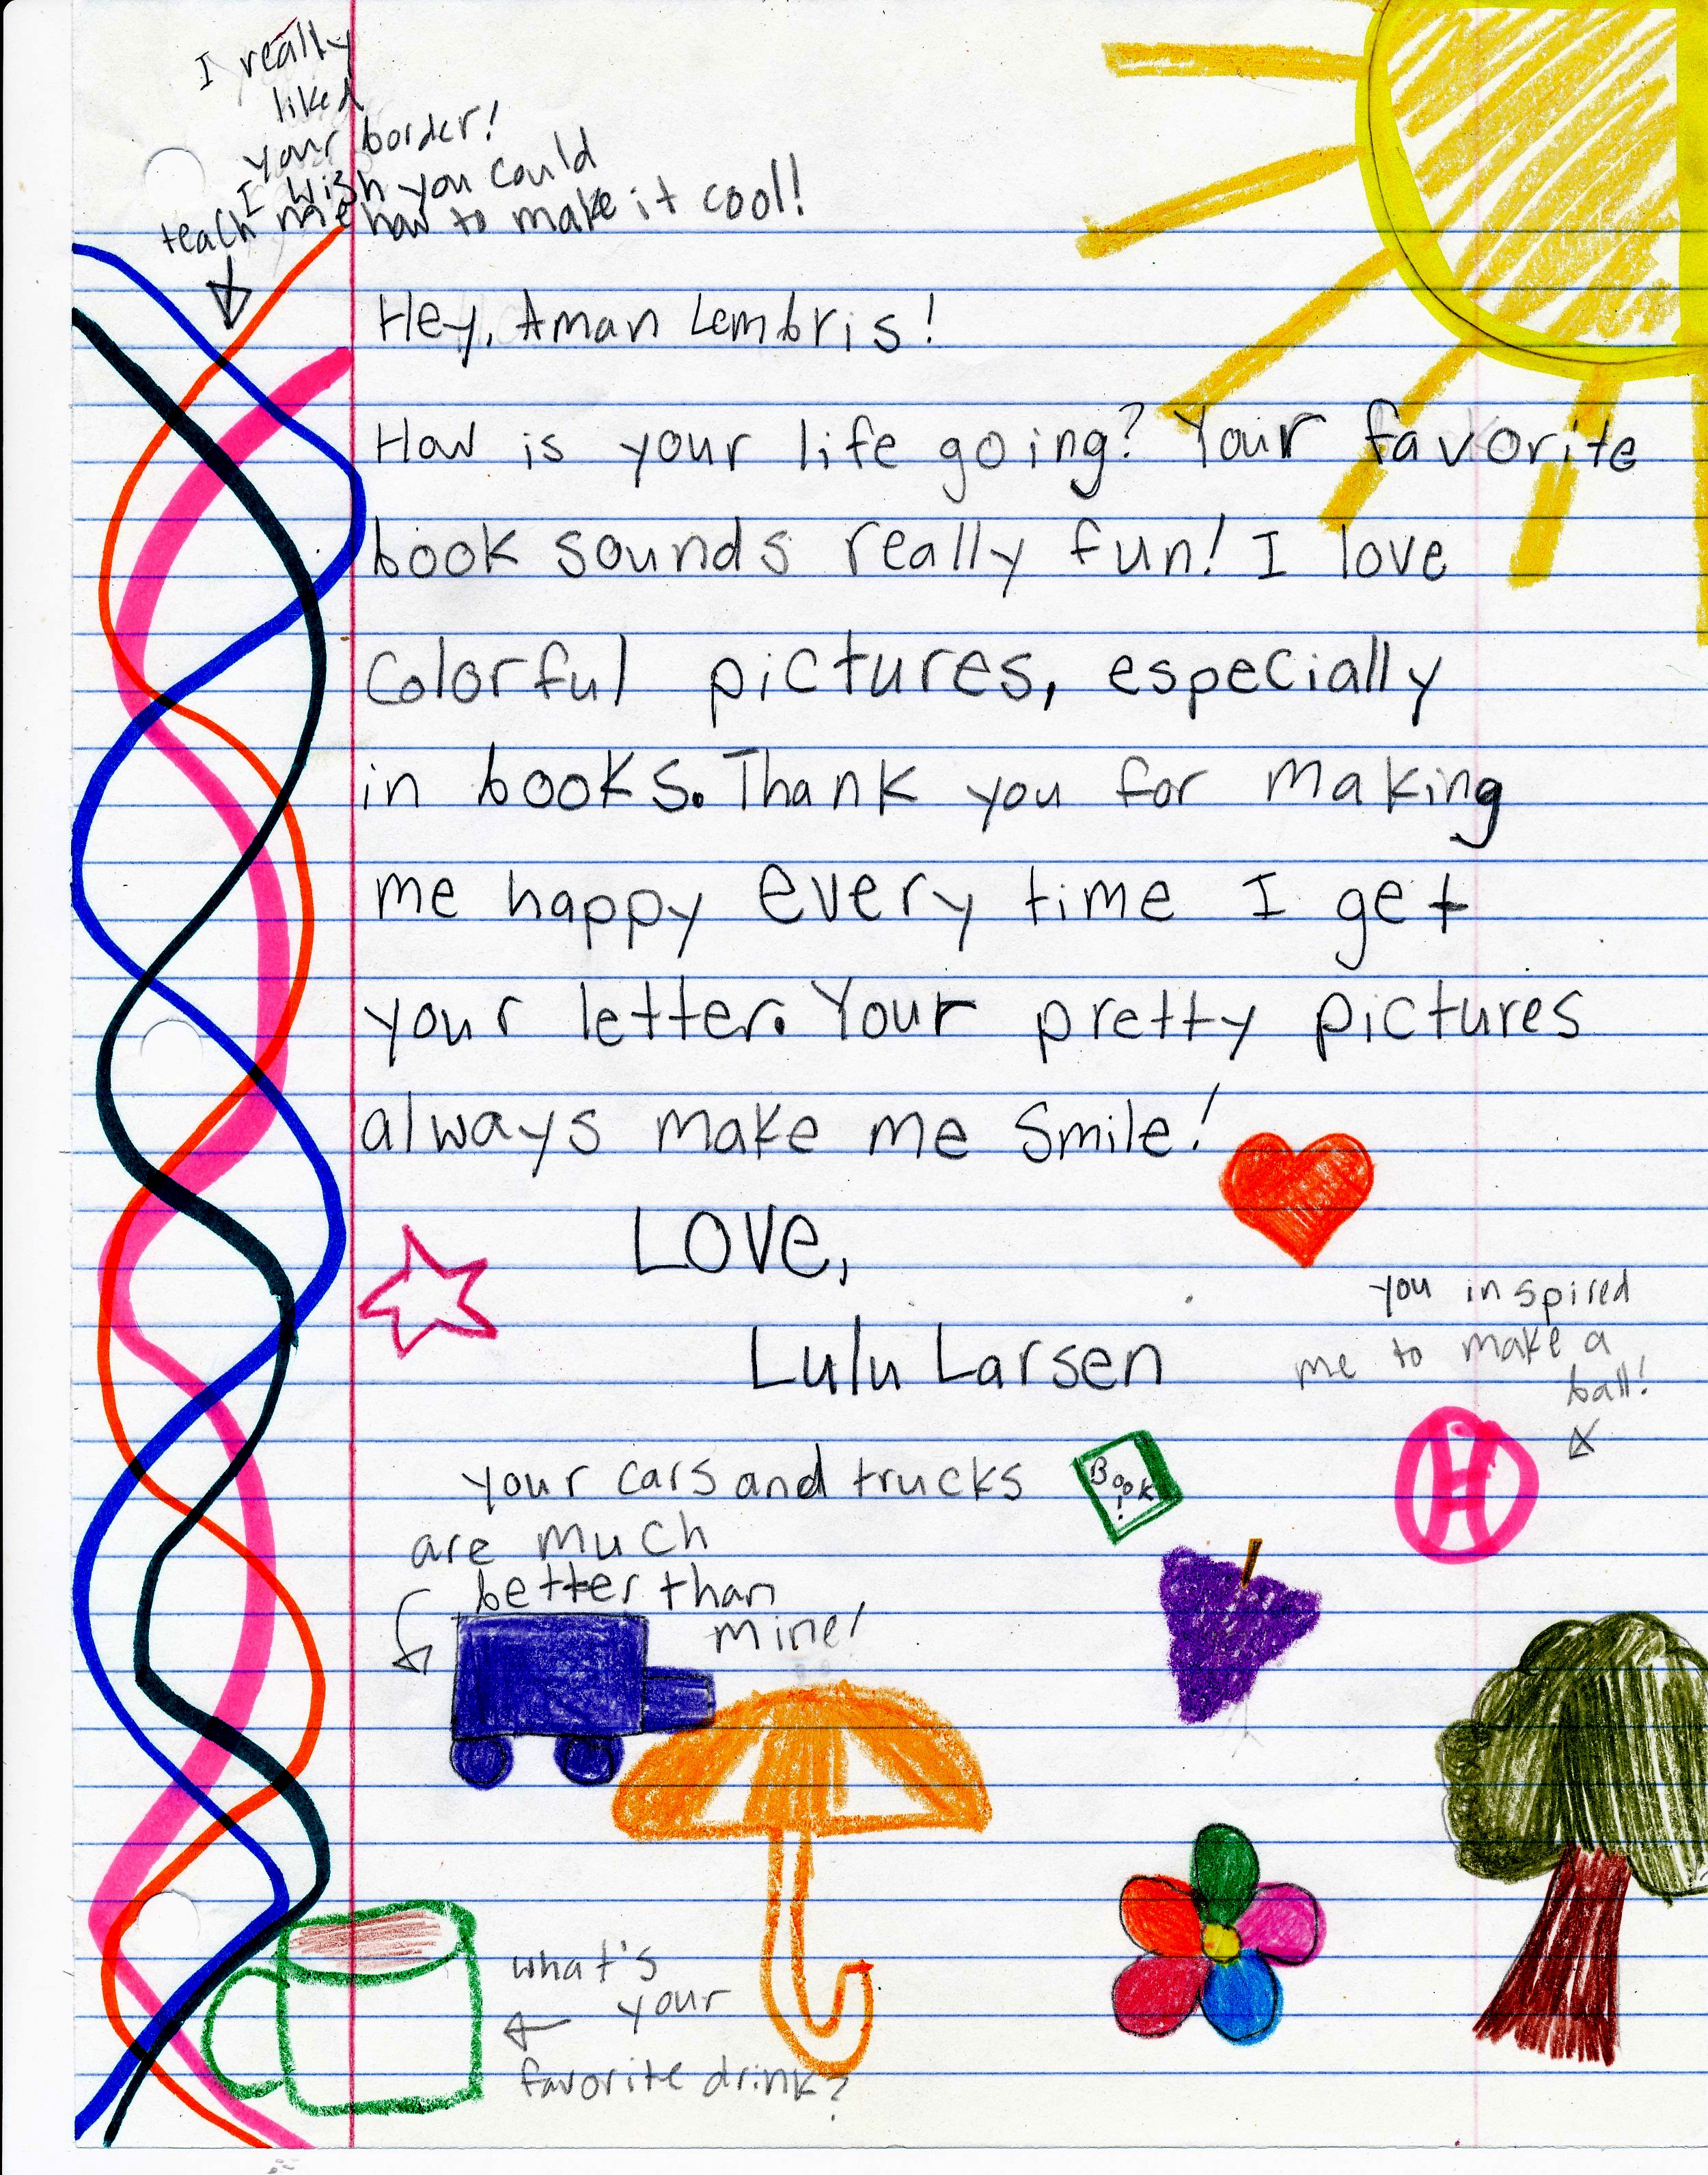 I really
liked
your border!
I wish you could
teach me how to make it cool!
Hey, Aman Lembris!
How is your life going? Your favorite
book sounds really fun! I love
colorful pictures, especially
in books. Thank you for making
me happy every time I get
your letter. Your pretty pictures
always make me smile!
LOVE,
Lulu Larsen
you inspired
me to make a
ball!
your cars and trucks
are much
better than
mine!
Book
!
what's
your
favorite drink?